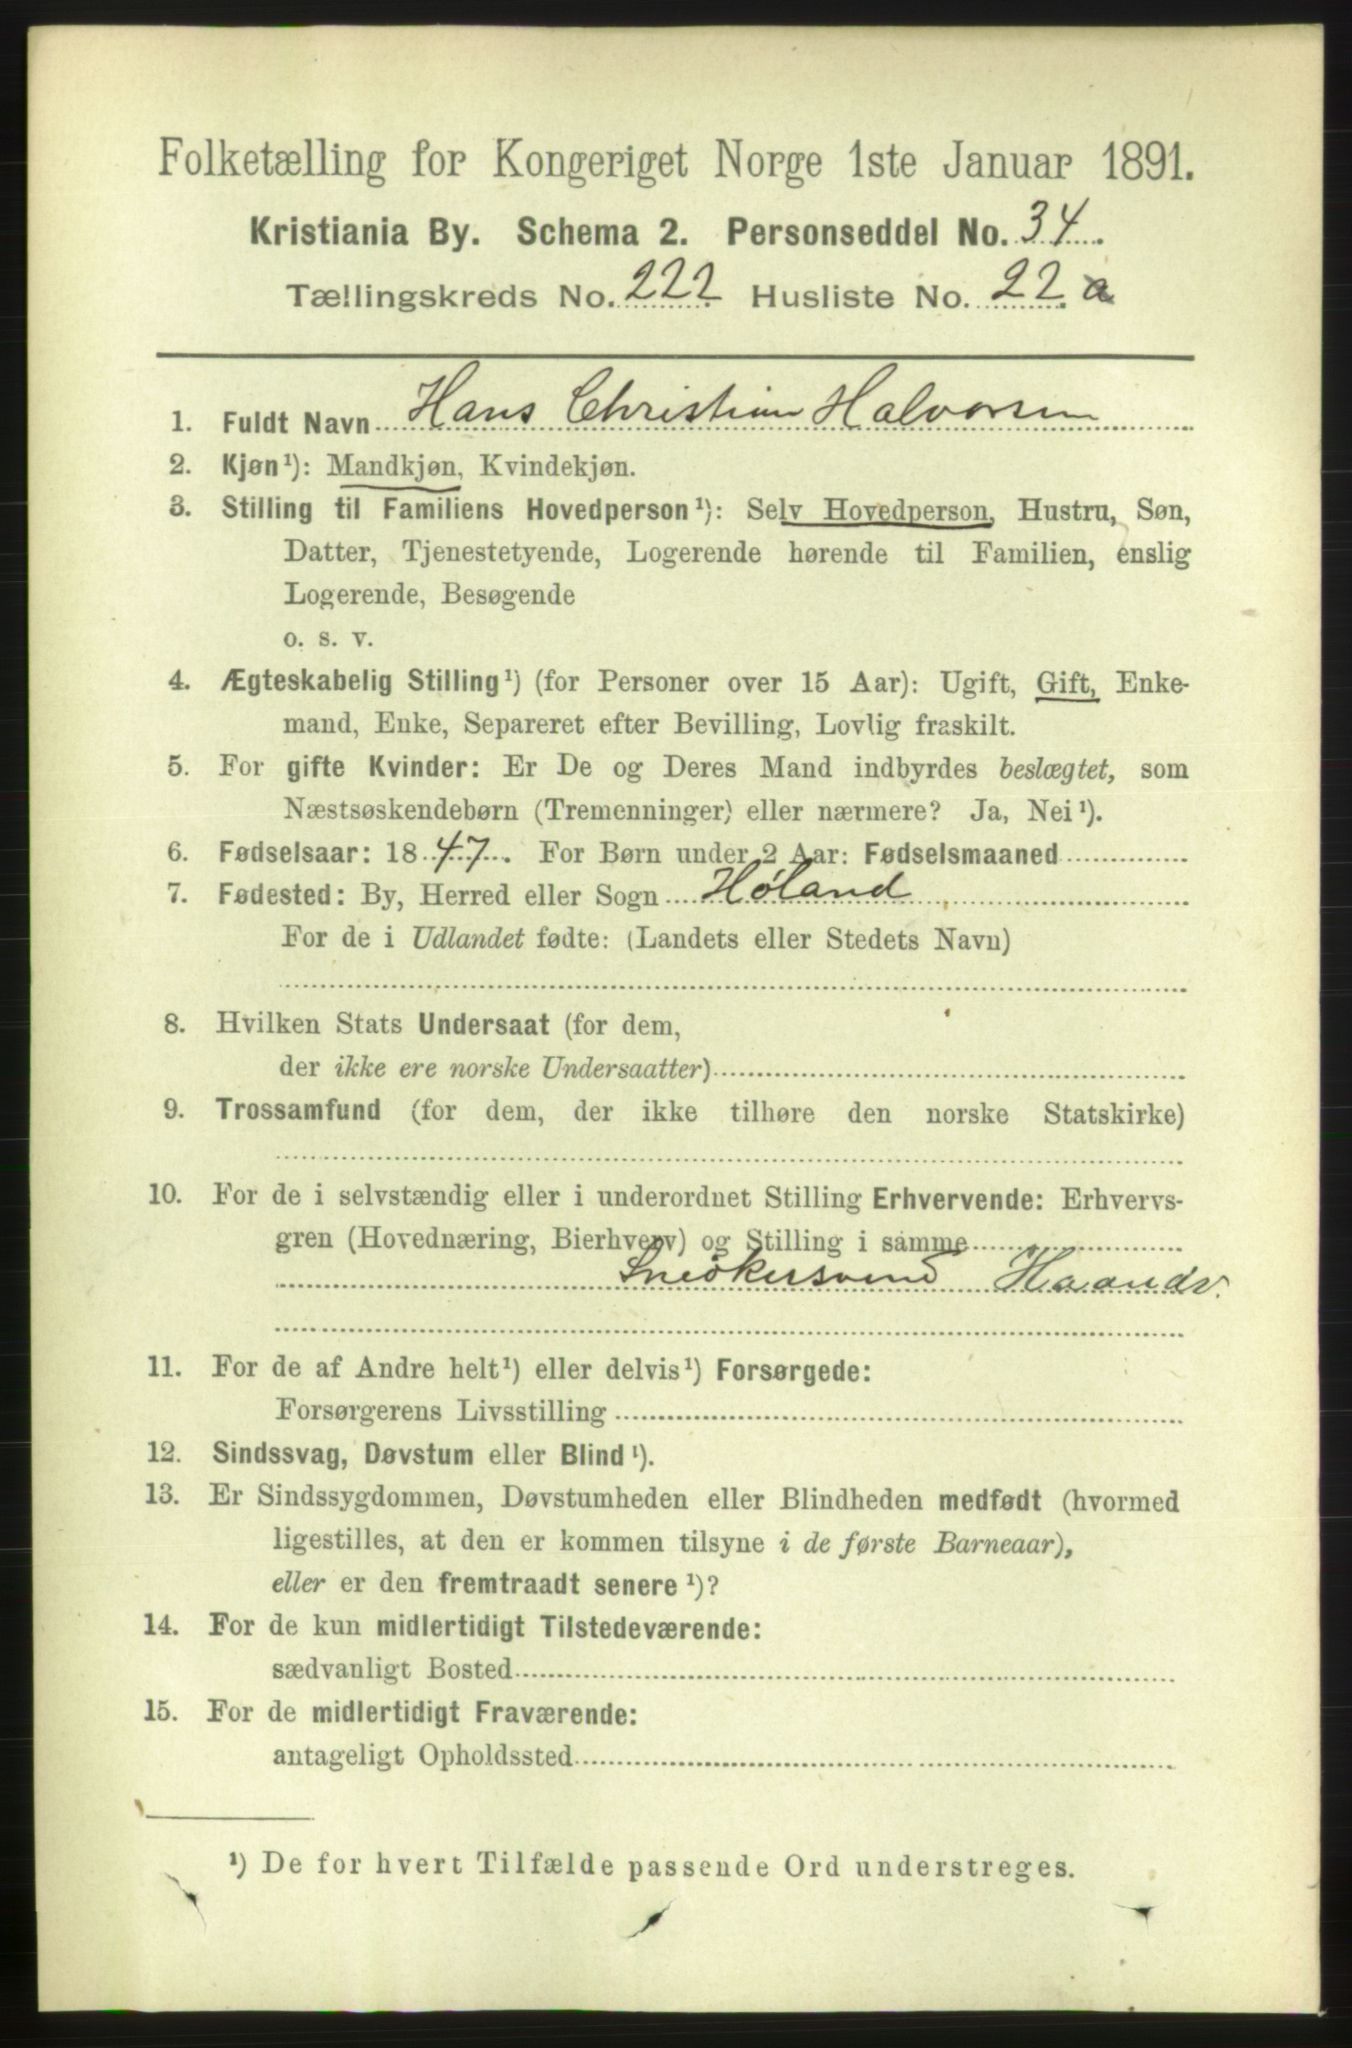 Folketælling for Kongeriget Norge 1ste Januar 1891.
Kristiania By. Schema 2. Personseddel No. 34.
Tællingskreds No. 222 Husliste No. 22 a
1. Fuldt Navn Hans Christian Halvorsen
2. Kjøn¹): Mandkjøn, Kvindekjøn.
3. Stilling til Familiens Hovedperson¹): Selv Hovedperson, Hustru, Søn,
Datter, Tjenestetyende, Logerende hørende til Familien, enslig
Logerende, Besøgende
o. s. v.
4. Ægteskabelig Stilling¹) (for Personer over 15 Aar): Ugift, Gift, Enke-
mand, Enke, Separeret efter Bevilling, Lovlig fraskilt.
5. For gifte Kvinder: Er De og Deres Mand indbyrdes beslægtet, som
Næstsøskendebørn (Tremenninger) eller nærmere? Ja, Nei¹).
6. Fødselsaar: 1847. For Børn under 2 Aar: Fødselsmaaned
7. Fødested: By, Herred eller Sogn Høland
For de i Udlandet fødte: (Landets eller Stedets Navn)
8. Hvilken Stats Undersaat (for dem,
der ikke ere norske Undersaatter)
9. Trossamfund (for dem, der ikke tilhøre den norske Statskirke)
10. For de i selvstændig eller i underordnet Stilling Erhvervende: Erhvervs-
gren (Hovednæring, Bierhverv) og Stilling i samme
Sneökersvend Haandv.
11. For de af Andre helt¹) eller delvis¹) Forsørgede:
Forsørgerens Livsstilling
12. Sindssvag, Døvstum eller Blind¹).
13. Er Sindssygdommen, Døvstumheden eller Blindheden medfødt (hvormed
ligestilles, at den er kommen tilsyne i de første Barneaar),
eller er den fremtraadt senere¹)?
14. For de kun midlertidigt Tilstedeværende:
sædvanligt Bosted
15. For de midlertidigt Fraværende:
antageligt Opholdssted
¹) De for hvert Tilfælde passende Ord understreges.